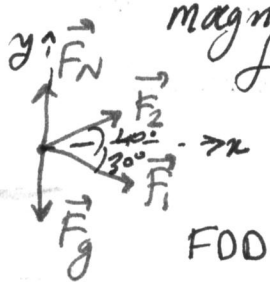 magn
y
F_N
F_2
40°
x
30°
F_1
F_g
FOD